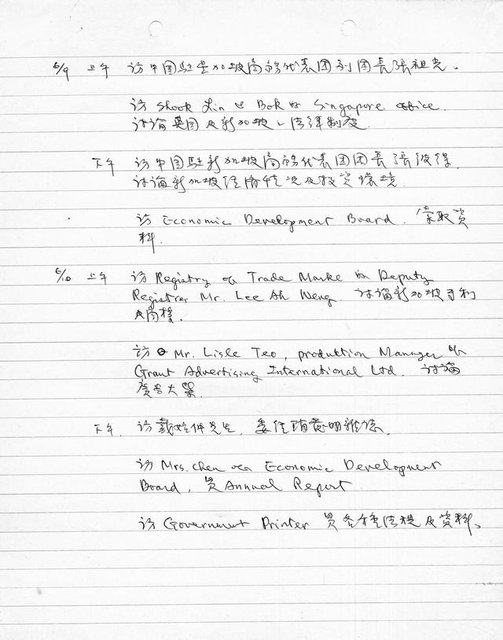 6/9 上午 访中国驻新加坡商務代表团副团長張祖克。
访 Shook Lin & Bok 的 Singapore office.
讨論英国及新加坡之法律制度
下午 访中国駐新加坡商務代表团团長張
讨論新加坡经济情况及投资環境
访 Economic Development Board. 索取资
料.
6/10 上午 访 Registry of Trade Marks 的 Deputy
Registrar Mr. Lee Ah Weng 讨論新加坡专利
及商標.
访 Mr. Lisle Teo, production Manager of
Grant Advertising International Ltd. 讨論
下午. 访 先生.
访 Mrs. Chen of Economic Development
Board, 買 Annual Report.
访 Government Printer 買各种法規及资料.